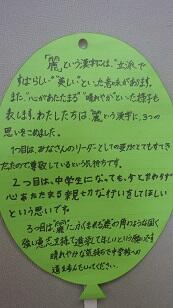 「麗」という漢字には、"立派"で
すばらしい"美しい"といった意味があります。
また、"心があたたまる" "晴れやか"といった様子も
表します。わたしたちは「麗」という漢字に、3つの
思いをこめました。
1つ目は、みなさんのリーダーとしての姿がとてもすてき
だったので尊敬しているという気持ちです。
2つ目は、中学生になっても、今と変わらず
心あたたまる親切な行いをしてほしい
という思いです。
3つ目は、「麗」にふくまれる鹿の角のような固く
強い意志を持ち進学してほしいという願いと
晴れやかな気持ちで中学校への
道を歩んでいってください。